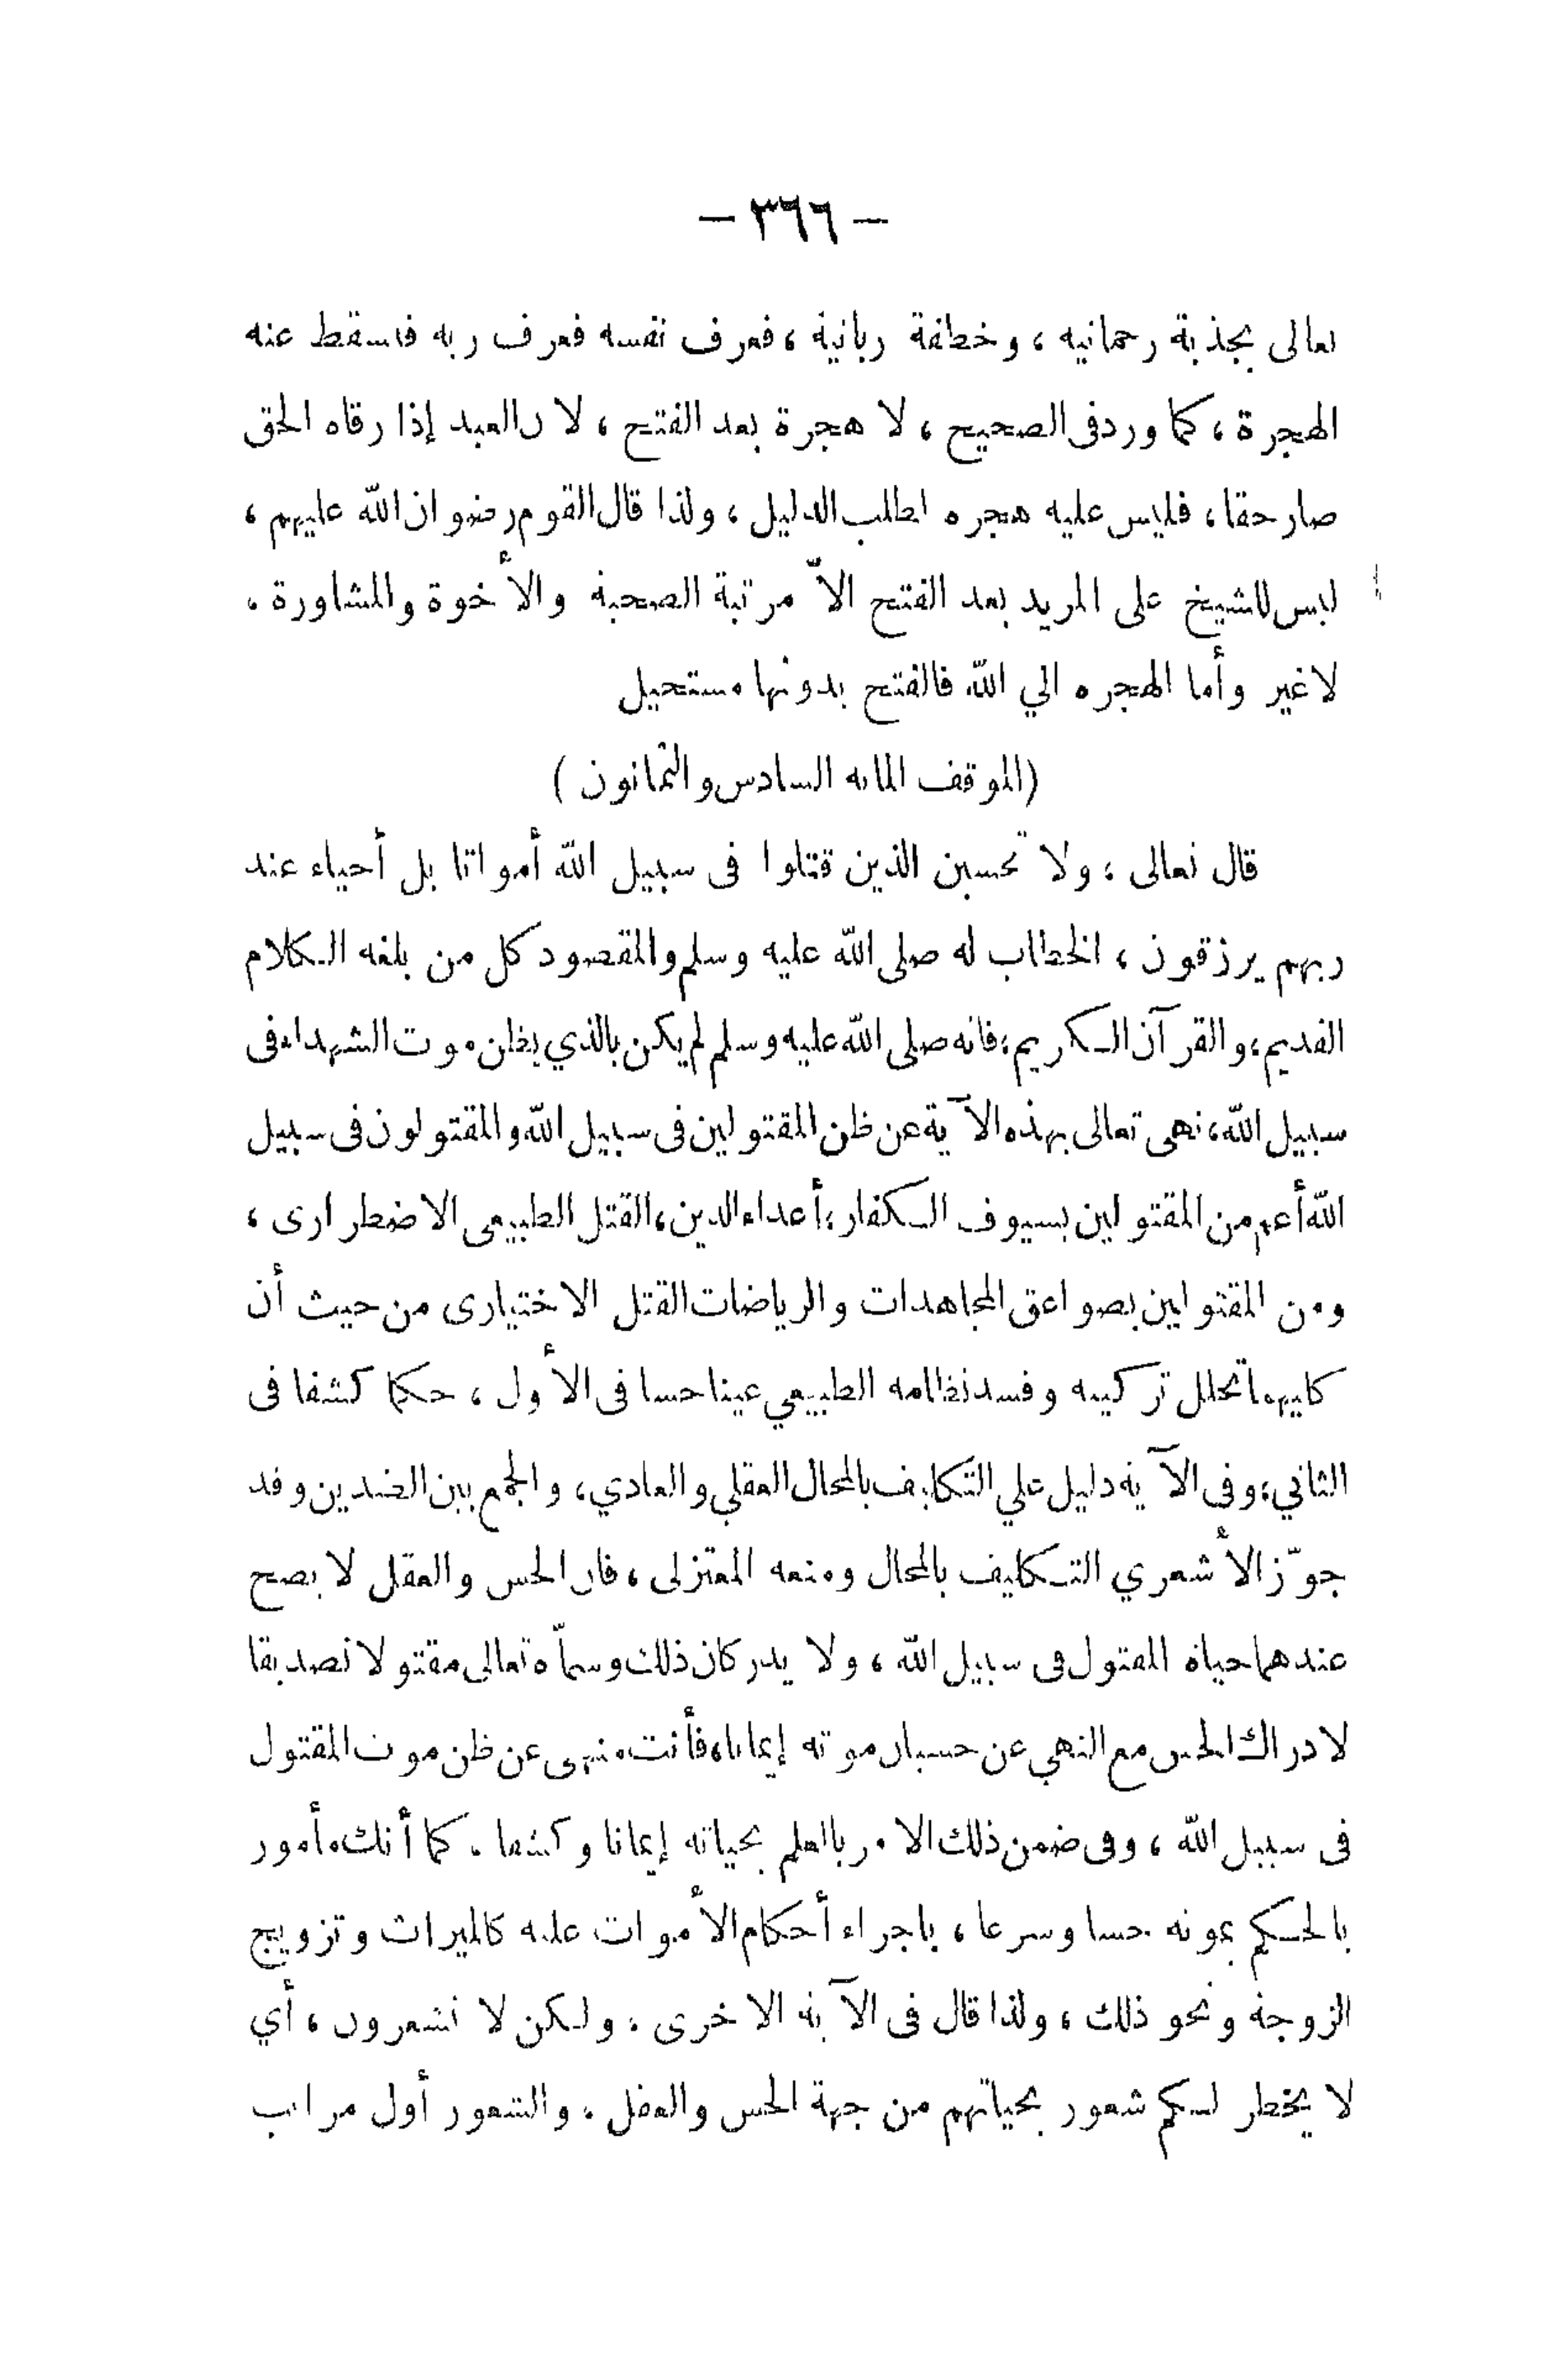 — ٣٦٦ —
تعالى بجذبة رحمانيه ، وخطفة ربانية ، فعرف نفسه فعرف ربه فاسقط عنه
الهجرة ، كما ورد فى الصحيح ، لا هجرة بعد الفتح ، لان العبد إذا رقاه الحق
صار حقا ، فليس عليه هجره لطلب الدليل ، ولذا قال القوم رضوان الله عليهم ،
ليس للشيخ على المريد بعد الفتح الاّ مرتبة الصحبة والأخوة والمشاورة ،
لاغير وأما الهجره الي الله فالفتح بدونها مستحيل
(الموقف المايه السادس والثمانون )
قال تعالى ، ولا تحسبن الذين قتلوا فى سبيل الله أمواتا بل أحياء عند
ربهم يرزقون ، الخطاب له صلى الله عليه وسلم والمقصود كل من بلغه الكلام
القديم ، والقرآن الكريم ، فانه صلى الله عليه وسلم لم يكن بالذي يظن موت الشهداء فى
سبيل الله ، نهى تعالى بهذه الآية عن ظن المقتولين فى سبيل الله والمقتولون فى سبيل
الله أعم من المقتولين بسيوف الكفار ، أعداء الدين ، القتل الطبيعى الاضطرارى ،
ومن المقتولين بصواعق المجاهدات والرياضات القتل الاختيارى من حيث أن
كليهما تحلل تركيبه وفسد نظامه الطبيعي عينا حسا فى الأول ، حكما كشفا فى
الثاني ، وفى الآية دليل علي التكليف بالمحال العقلي والعادي ، والجمع بين الضدين وقد
جوّز الأشعري التكليف بالمحال ومنعه المعتزلى ، فان الحس والعقل لا يصح
عندهما حياة المقتول فى سبيل الله ، ولا يدركان ذلك وسماّه تعالى مقتولا تصديقا
لادراك الحس مع النهي عن حسبان موته إيمانا ، فأنت منهى عن ظن موت المقتول
فى سبيل الله ، وفى ضمن ذلك الامر بالعلم بحياته إيمانا وكشفا . كما أنك مأمور
بالحكم بموته حسا وشرعا ، باجراء أحكام الأموات عليه كالميراث وتزويج
الزوجة ونحو ذلك ، ولذا قال فى الآية الاخرى . ولكن لا تشعرون ، أي
لا يخطر لكم شعور بحياتهم من جهة الحس والعقل . والشعور أول مراتب